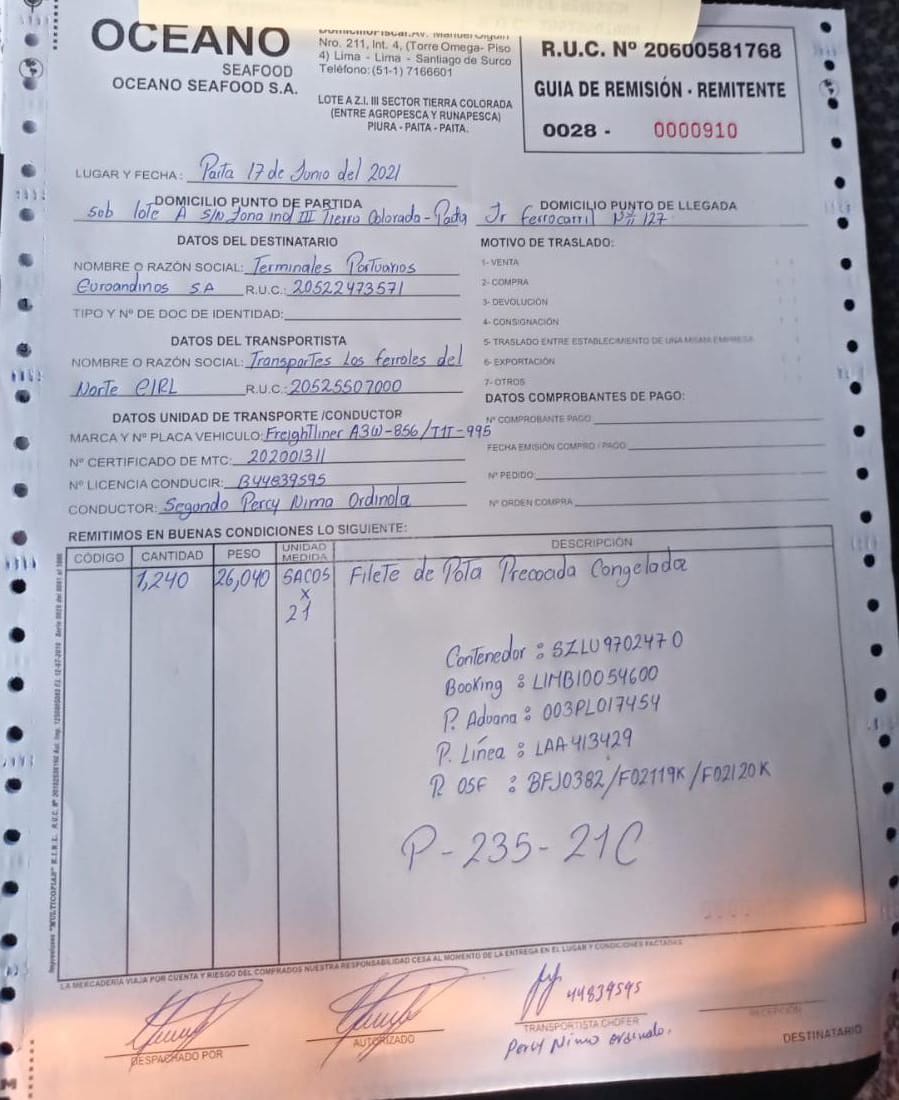 OCEANO
SEAFOOD
OCEANO SEAFOOD S.A.
Nro. 211, Int. 4, (Torre Omega- Piso
4) Lima - Lima - Santiago de Surco
Teléfono: (51-1) 7166601
LOTE A Z.I. III SECTOR TIERRA COLORADA
(ENTRE AGROPESCA Y RUNAPESCA)
PIURA - PAITA - PAITA.
R.U.C. Nº 20600581768
GUIA DE REMISIÓN - REMITENTE
0028 - 0000910
LUGAR Y FECHA: Paita 17 de Junio del 2021
DOMICILIO PUNTO DE PARTIDA
Sob lote A S/N Zona ind III Tierra Colorada - Paita
DOMICILIO PUNTO DE LLEGADA
Jr Ferrocarril Nº 127
DATOS DEL DESTINATARIO
NOMBRE O RAZÓN SOCIAL: Terminales Portuarios
Euroandinos SA R.U.C.: 20522473571
TIPO Y Nº DE DOC DE IDENTIDAD:
DATOS DEL TRANSPORTISTA
NOMBRE O RAZÓN SOCIAL: Transportes Los Ferroles del
Norte EIRL R.U.C.: 20525507000
DATOS UNIDAD DE TRANSPORTE /CONDUCTOR
MARCA Y Nº PLACA VEHICULO: Freightliner A3W-856/T1T-995
Nº CERTIFICADO DE MTC: 202001311
Nº LICENCIA CONDUCIR: B44839595
CONDUCTOR: Segundo Percy Nima Ordinola
MOTIVO DE TRASLADO:
1- VENTA
2- COMPRA
3- DEVOLUCIÓN
4- CONSIGNACIÓN
5- TRASLADO ENTRE ESTABLECIMIENTO DE UNA MISMA EMPRESA
6- EXPORTACIÓN
7- OTROS
DATOS COMPROBANTES DE PAGO:
Nº COMPROBANTE PAGO:
FECHA EMISIÓN COMPRO / PAGO:
Nº PEDIDO:
Nº ORDEN COMPRA
REMITIMOS EN BUENAS CONDICIONES LO SIGUIENTE:
CÓDIGO CANTIDAD PESO UNIDAD MEDIDA DESCRIPCIÓN
1,240 26,040 SACOS Filete de Pota Precocida Congelada
x
21
Contenedor : SZLU9702470
Booking : LIMB10054600
P. Aduana : 003PL017454
P. Línea : LAA413429
P. OSF : BFJ0382/F02119K/F02120K
P-235-21C
LA MERCADERIA VIAJA POR CUENTA Y RIESGO DEL COMPRADOS NUESTRA RESPONSABILIDAD CESA AL MOMENTO DE LA ENTREGA EN EL LUGAR Y CONDICIONES PACTADAS
44839595
DESPACHADO POR
AUTORIZADO
TRANSPORTISTA CHOFER
Percy Nima Ordinola.
RECEPCIÓN
DESTINATARIO